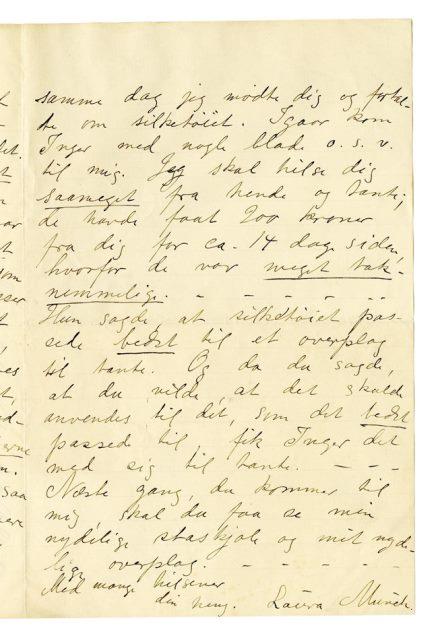 samme dag jeg mødte dig og fortal-
te om silketøiet. Igaar kom
Inger med nogle blade o. s. v.
til mig. Jeg skal hilse dig
saameget fra hende og tante;
de havde faat 200 kroner
fra dig for ca. 14 dage siden,
hvorfor de var meget tak-
nemmelige. – – – – – ..
Hun sagde, at silketøiet pas-
sede bedst til et overplag
til tante. Og da du sagde,
at du vilde, at det skulde
anvendes til det, som det bedst
passed til, fik Inger det
med sig til tante. – – –
Næste gang, du kommer til
mig, skal du faa se min
nydelige staskjole og mit nyde-
lige overplag. – – – – –
Med mange hilsener
din heng. Laura Munch.